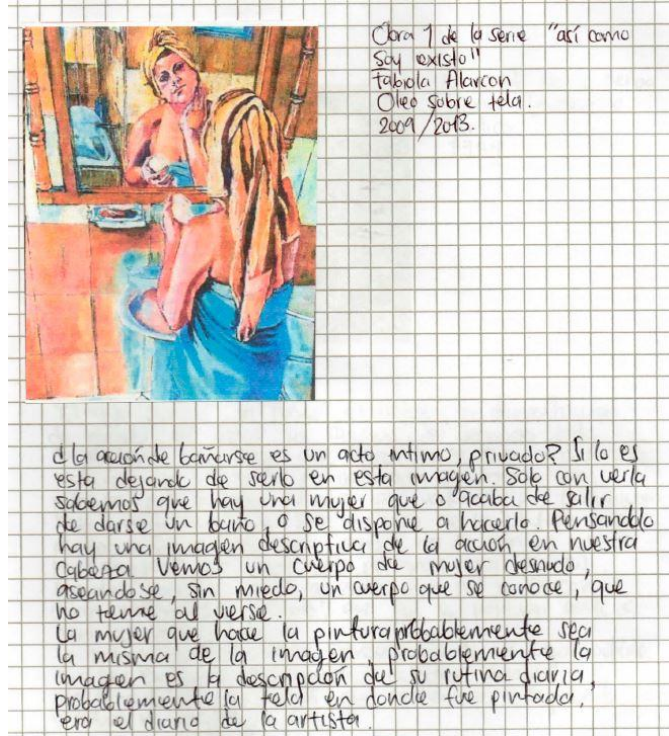 Obra 1 de la serie "así como
soy existo"
Fabiola Alarcon
Oleo sobre tela.
2009/2013.
¿la acción de bañarse es un acto intimo, privado? Si lo es
esta dejando de serlo en esta imagen. Solo con verla
sabemos que hay una mujer que o acaba de salir
de darse un baño, o se dispone a hacerlo. Pensandolo
hay una imagen descriptiva de la acción en nuestra
cabeza vemos un cuerpo de mujer desnudo,
aseandose, sin miedo, un cuerpo que se conoce, que
no teme al verse.
La mujer que hace la pintura probablemente sea
la misma de la imagen, probablemente la
imagen es la descripción de su rutina diaria,
probablemente la tela en donde fue pintada,
era el diario de la artista.